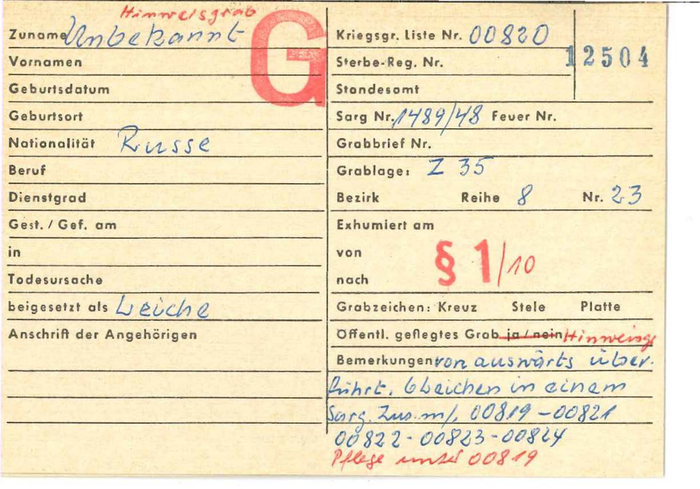 Hinweisgrab
Zuname Unbekannt
Vornamen
Geburtsdatum
Geburtsort
Nationalität Russe
Beruf
Dienstgrad
Gest. / Gef. am
in
Todesursache
beigesetzt als Leiche
Anschrift der Angehörigen
G
Kriegsgr. Liste Nr. 00820
12504
Sterbe-Reg. Nr.
Standesamt
Sarg Nr. 1489/48 Feuer Nr.
Grabbrief Nr.
Grablage: Z 35
Bezirk Reihe 8 Nr. 23
Exhumiert am
von
nach
§ 1/10
Grabzeichen: Kreuz Stele Platte
Öffentl. gepflegtes Grab ja / nein Hinweisg
Bemerkungen von auswärts über-
führt. 6 Leichen in einem
Sarg. Zus. m/. 00819-00821
00822-00823-00824
Pflege unter 00819